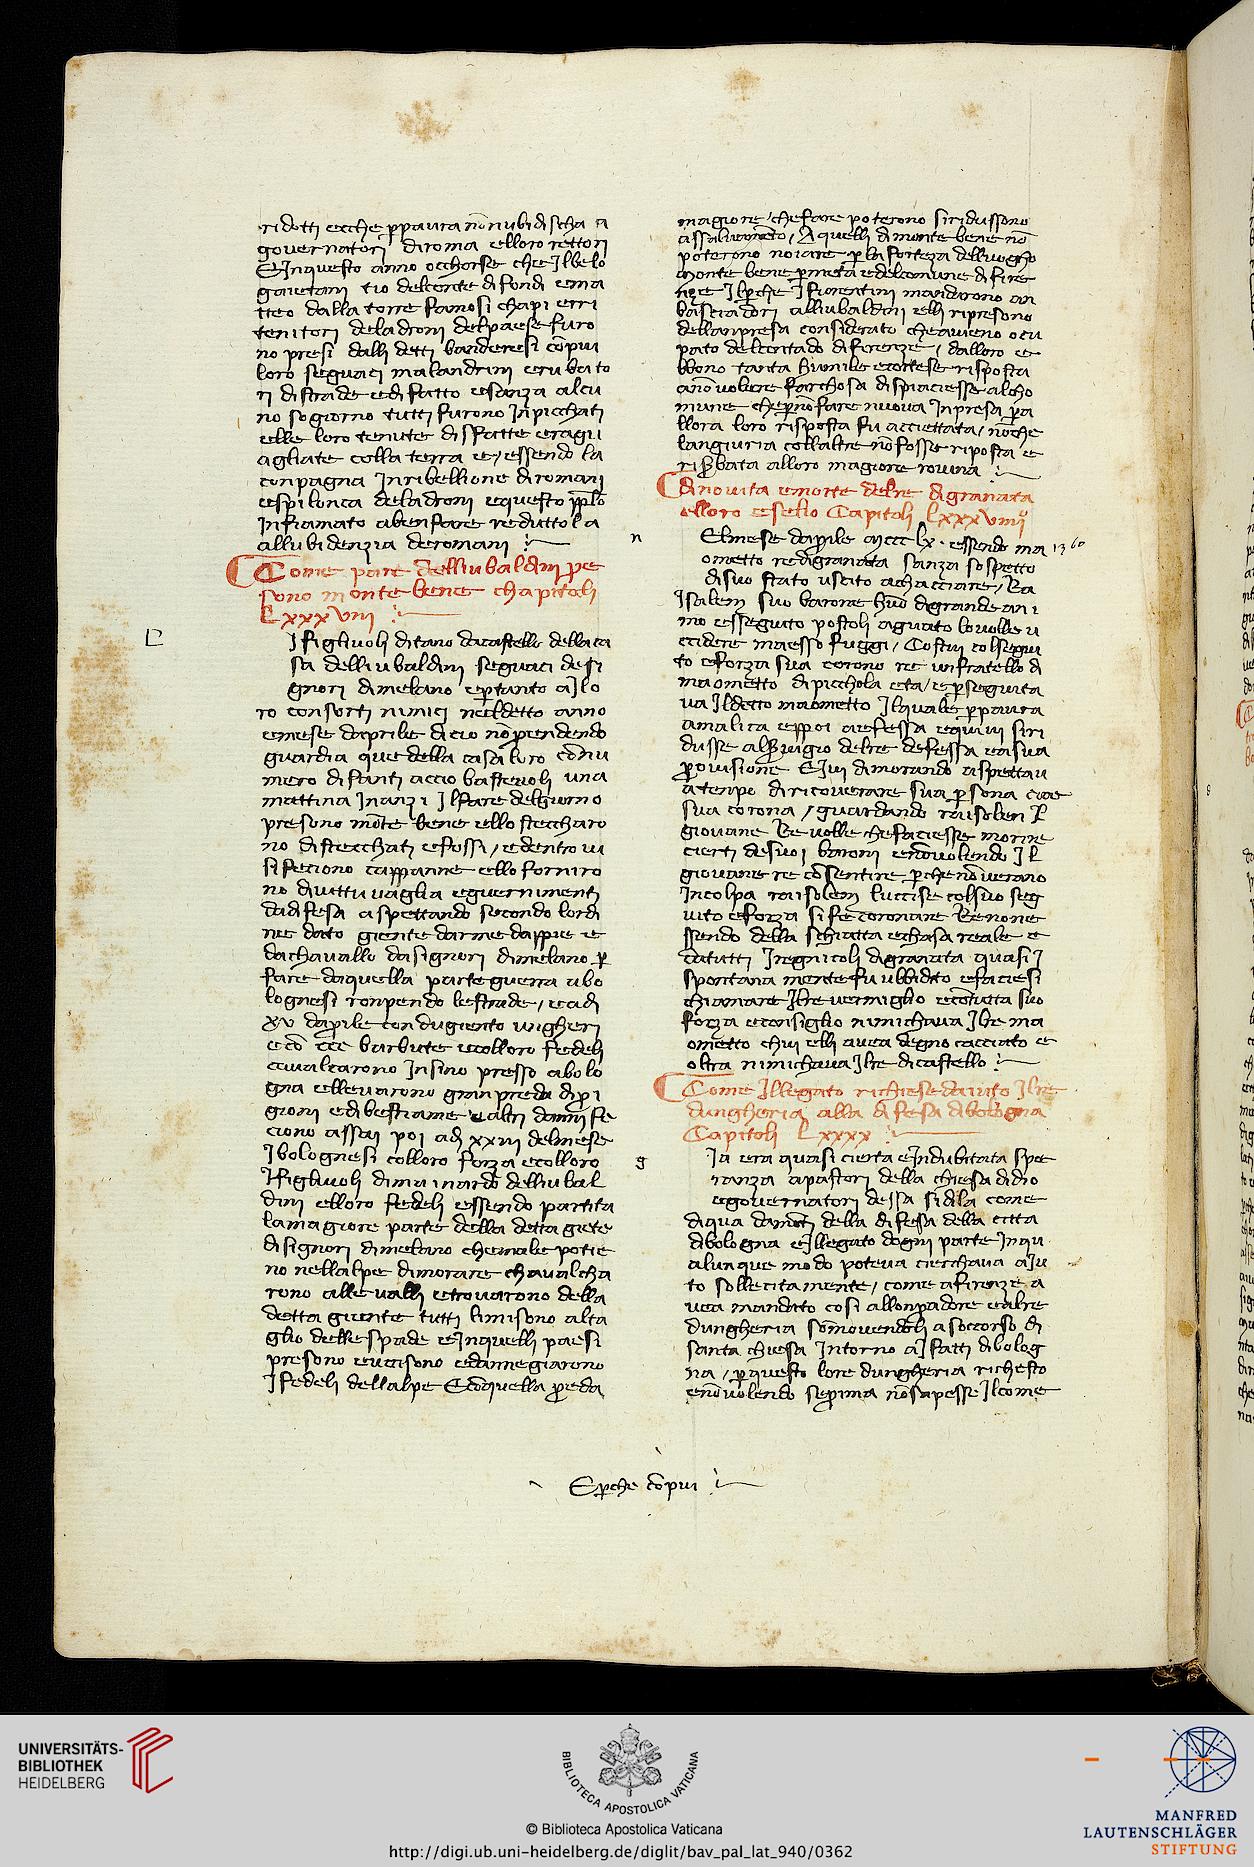 ridotti ecche p paura nō nubidischa a
governatori di roma elloro rettori
E Inquesto anno occhorse che Ilbelo
gaietani tio delconte di fondi e ma
tteo dalla torre famosi chapi et ri
tenitori deladroni del paese furo
no presi dalli detti banderesi cō piu
loro seguaci malandrini e rubato
ri di strade e di fatto e sanza alcu
no sogiorno tutti furono Inpicchati
elle loro tenute disfatte e ragu
agliate colla terra e/ essendo la
conpagna Inribellione di romani
e spilonca deladroni e questo
Infiamato a ben fare reduttola
allubidenzia de romani
Come parte delliubaldini pre
sono monte bene chapitoli
Lxxxviii
I figliuoli di tano da castello della ca
sa delliubaldini seguaci de si
gnori di melano e p tanto a I lo
ro consorti nimici neldetto anno
e mese daprile di cio nō prendendo
guardia que della casa loro cō nu
mero di fanti accio bastevoli una
mattina Inanzi Ilfare delgiorno
presono mōte bene ello steccharo
no di steccchati e fossi/ e dentro vi
si feciono cappanne ello forniro
no di vittuvaglia e guernimenti
da difesa aspettando secondo lordi
ne dato giente darme dappie e
dachavallo da signori di melano p
fare daquella parte guerra abo
lognesi ronpendo lestrade/ e adi
xv daprile con dugiento ungheri
e cō ccc barbute e colloro fedeli
cavalcarono Insino presso abolo
gna ellevarono gran preda di pri
gioni e di bestiame e altri danni fe
ciono assai poi adi xxiii delmese
I bolognesi colloro forza e colloro
I figliuoli di mainardo delliubal
dini elloro fedeli essendo partita
lamagiore parte della detta giete
di signori di melano che male potie
no nellalpe dimorare chavalcha
rono alle valli e trovarono della
detta giente tutti li misono alta
glio delle spade e Inquelli paesi
presono e uccisono e dannegiarono
I fedeli dellalpe E cōquella preda
magiore/ che fare poterono si ridussono
assalvamēto/ A quelli di monte bene nō
poterono noiare p la forteza delluogho
monte bene p meta e delcomune di fire
nze Ilpche I fiorentini mandarono an
basciadori alliubaldini elli ripresono
dellanpresa considerato che avieno ocu
pato delcontado di firenze/ dalloro e
bbono tanta humile e cortese risposta
a nō volere far chosa dispiaciesse al cho
mune che p nō fare nuova Inpresa p a
llora loro risposta fu acciettata/ nōche
langiuria collaltre nō fosse riposta e
riserbata alloro magiore rovina
Di novita e morte delre di granata
elloro eselio Capitoli Lxxxviiii°
n
El mese daprile mccclx. essendo ma
1360
ometto re di granata sanza sospetto
di suo stato uscito achacciare/ Ra
Isalem suo barone huō di grande ani
mo e sseguito postoli aguato lo volle u
ccidere ma esso fuggi/ Costui col segui
to e forza sua corono re un fratello di
maometto di picchola eta/ e p seguita
va Ildetto maometto Ilquale p paura
a malica e ppoi a efessa e quivi si ri
dusse al servigio delre defessa e a sua
provisione E Ivi dimorando aspettav
a tenpo di ricoverare sua persona e la
sua corona/ guardando raisolem Il
giovane Re volle che faciesse morire
cierti de suoi baroni e nō volendo Il
giovane re cōsentire p che nō verano
Incolpa raisolem luccise colsuo seg
uito e forza si fe coronare Re none
ssendo della schiatta e chasa reale e
da tutti I regnicoli di granata quasi I
spontana mente fu ubbidito e faciesi
chiamare Ilre vermiglio e cō tutta suo
forza e consiglio nimichava Ilre ma
ometto chui elli avea degno cacciato e
oltra nimichava Ilre di castello
Come Illegato richiese daiuto Ilre
dungheria alla difesa di bologna
Capitoli Lxxxx
g
Ia era quasi cierta e Indubitata spe
ranza a pastori della chiesa di dio
e governatori dessa si di la come
di qua da mōti della difesa della citta
di bologna e Illegato dogni parte Inqu
alunque modo poteva cierchava aiu
to sollecitamente/ come a firenze a
vea mandato cosi allonpadore e alre
dungheria somovendoli a soccorso di
santa chiesa Intorno a I fatti di bolog
na/ p questo lore dungheria richesto
e nō volendo se prima nō sapesse Ilcome
E perche cō piu
UNIVERSITÄTS-
BIBLIOTHEK
HEIDELBERG
BIBLIOTECA APOSTOLICA VATICANA
© Biblioteca Apostolica Vaticana
http://digi.ub.uni-heidelberg.de/diglit/bav_pal_lat_940/0362
MANFRED
LAUTENSCHLÄGER
STIFTUNG